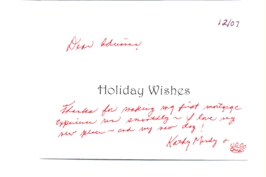 12/07
Dear Adrienne,
Holiday Wishes
Thanks for making my first mortgage
experience run smoothly – I love my
new place – and my new dog!